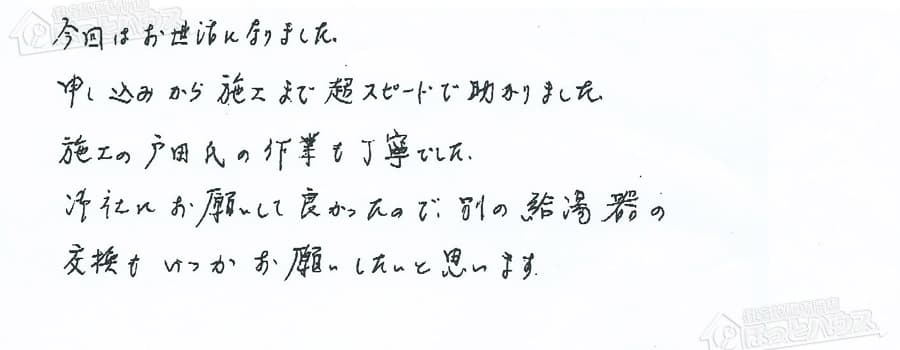 今回はお世話になりました。
申し込みから施工まで超スピードで助かりました。
施工の戸田氏の作業も丁寧でした。
浄社にお願いして良かったので、別の給湯器の
交換もいつかお願いしたいと思います。
ほっとハウス